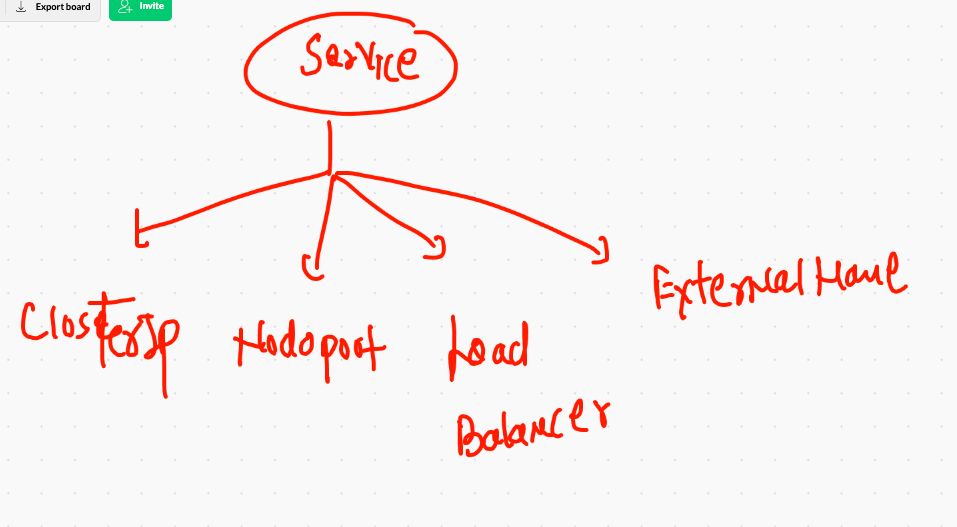 Export board
Invite
Service
ClusterIP
Nodeport
Load
Balancer
ExternalName